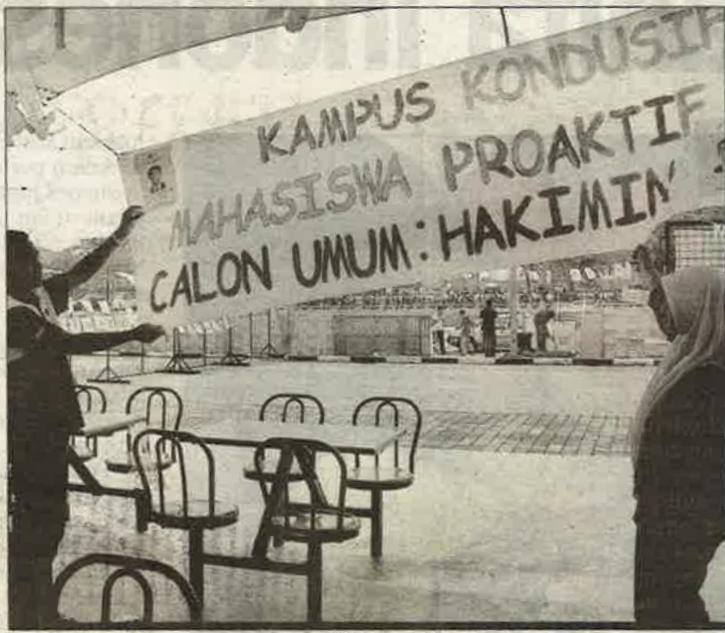 KAMPUS KONDUSIF
MAHASISWA PROAKTIF
CALON UMUM: HAKIMIN